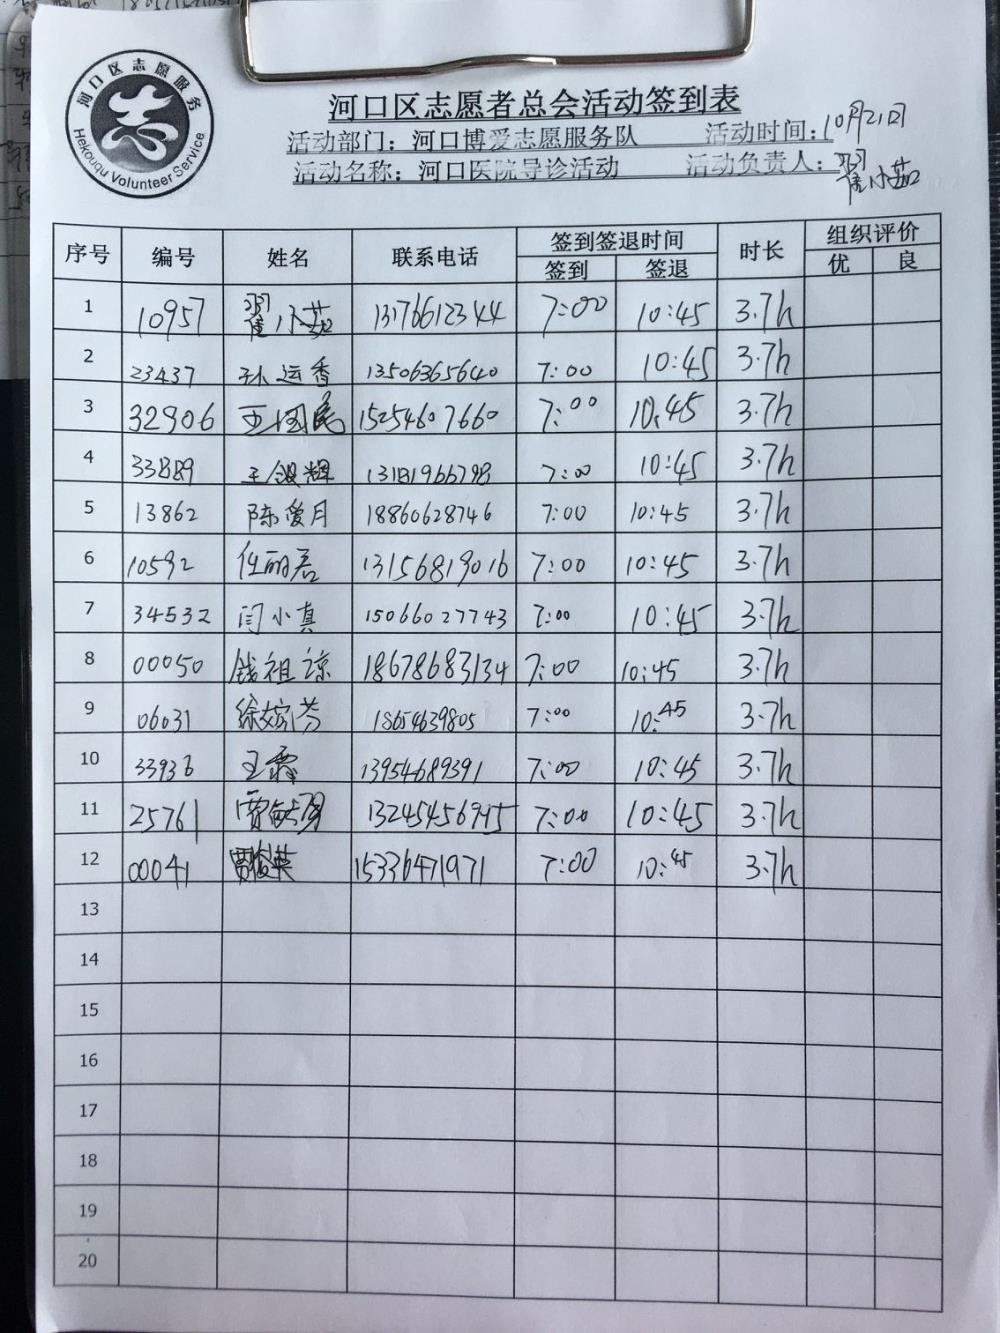 河口区志愿服务
Hekouqu Volunteer Service
河口区志愿者总会活动签到表
活动部门：河口博爱志愿服务队 活动时间：10月21日
活动名称：河口医院导诊活动 活动负责人：翟小茹
序号 编号 姓名 联系电话 签到签退时间 时长 组织评价
签到 签退 优 良
1 10957 翟小茹 13176612344 7:00 10:45 3.7h
2 23437 孙运香 13506365640 7:00 10:45 3.7h
3 32906 王国民 15254607660 7:00 10:45 3.7h
4 33889 王银辉 13181966798 7:00 10:45 3.7h
5 13862 陈爱月 18860628746 7:00 10:45 3.7h
6 10592 任丽君 13156819016 7:00 10:45 3.7h
7 34532 闫小真 15066027743 7:00 10:45 3.7h
8 00050 钱祖谅 18678683134 7:00 10:45 3.7h
9 06031 徐嫁芬 18654639805 7:00 10:45 3.7h
10 33936 王霞 13954689391 7:00 10:45 3.7h
11 25761 贾 13245456915 7:00 10:45 3.7h
12 00041 贾俊英 15336471971 7:00 10:45 3.7h
13
14
15
16
17
18
19
20